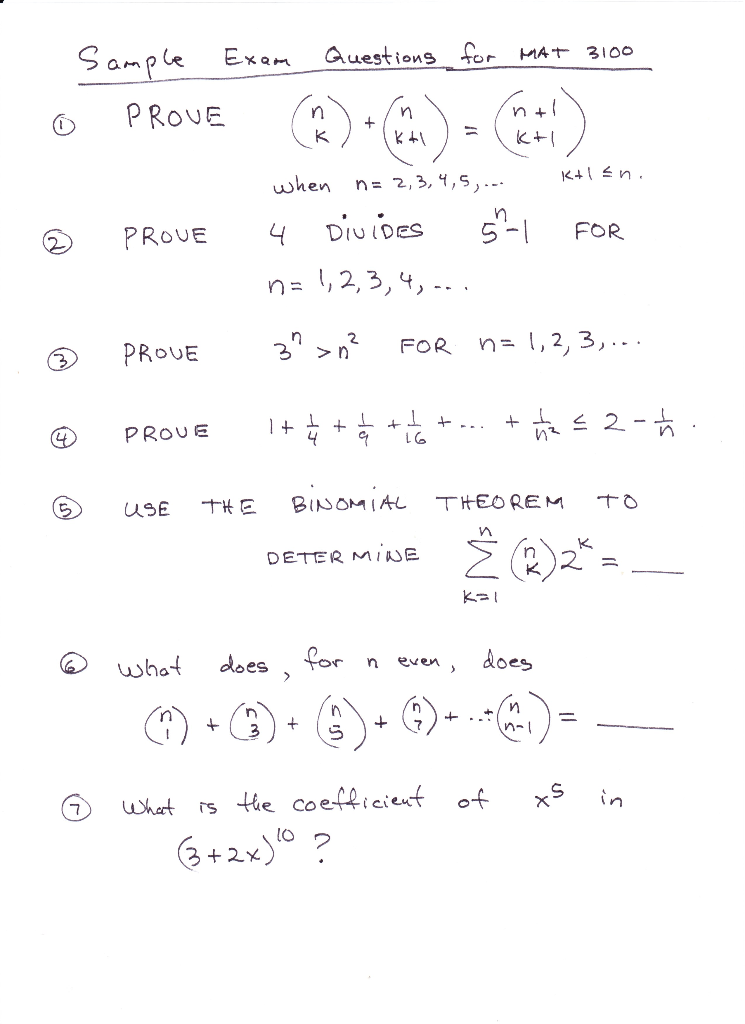 Sample Exam Questions for MAT 3100
① PROVE (n k) + (n k+1) = (n+1 k+1)
when n = 2, 3, 4, 5, ... k+1 ≤ n.
② PROVE 4 DIVIDES 5ⁿ-1 FOR
n = 1, 2, 3, 4, ... .
③ PROVE 3ⁿ > n² FOR n = 1, 2, 3, ...
④ PROVE 1 + 1/4 + 1/9 + 1/16 + ... + 1/n² ≤ 2 - 1/n .
⑤ USE THE BINOMIAL THEOREM TO
DETERMINE n Σ k=1 (n k) 2ᵏ = __
⑥ What does, for n even, does
(n 1) + (n 3) + (n 5) + (n 7) + ... + (n n-1) = __
⑦ What is the coefficient of x⁵ in
(3+2x)¹⁰ ?